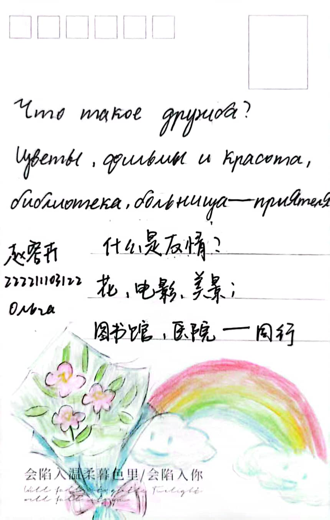 Что такое дружба?
Цветы, фильмы и красота,
библиотека, больница—приятеля
什么是友情？
花，电影，美景；
图书馆，医院 — 同行
222211103122
Ольга
会陷入温柔暮色里/会陷入你